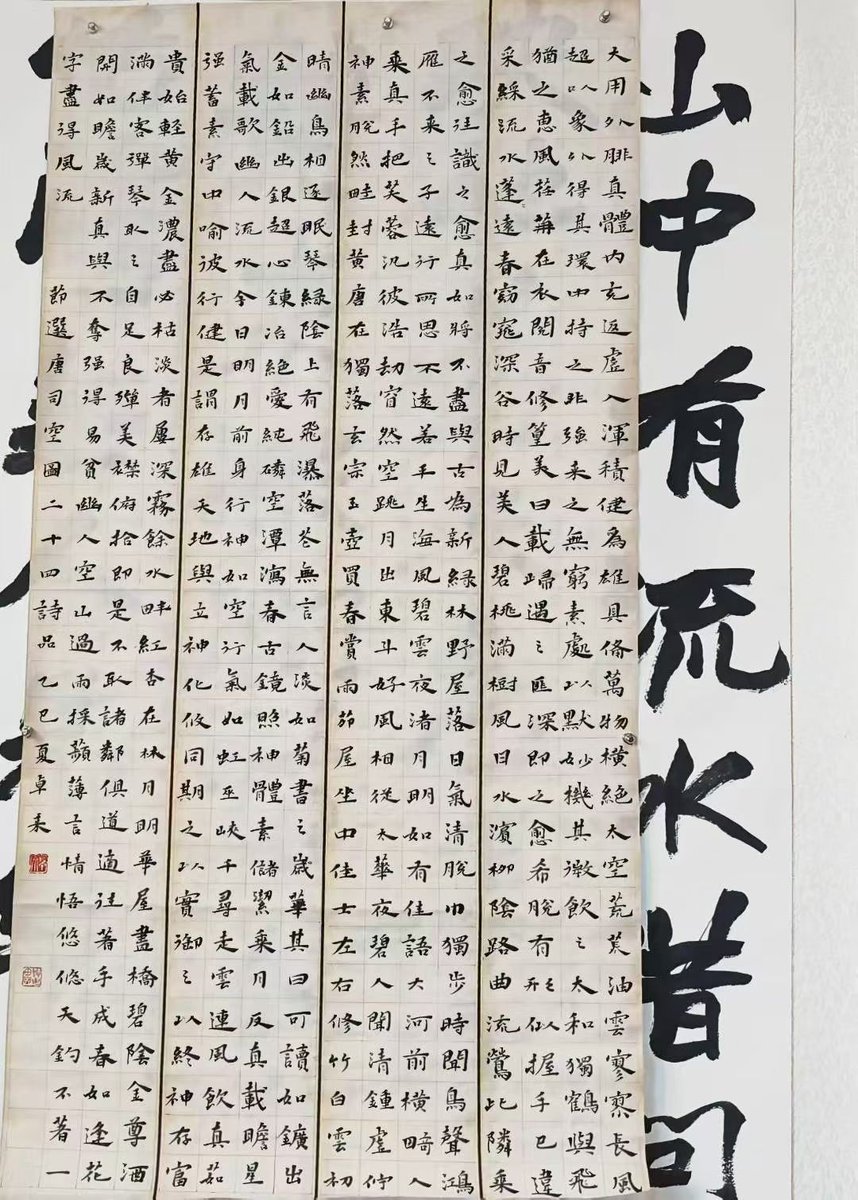 山中有流水昔問
大用外腓真體內充返虛入渾積健為雄具俻萬物橫絕太空荒荒油雲寥寥長風
超以象外得其環中持之非強来之無窮素處以默妙機其微飲之太和獨鶴與飛
猶之惠風荏苒在衣閱音修篁美曰載歸遇之匪深即之愈希脫有形似握手已違
采綵流水蓬遠春窈窕深谷時見美人碧桃滿樹風日水濱柳陰路曲流鶯比隣乗
之愈往識之愈真如將不盡與古為新緑林野屋落日氣清脫巾獨步時聞鳥聲鴻
雁不来之子遠行所思不遠若手生海風碧雲夜渚月明如有佳語大河前横畸人
乗真手把芙蓉汎彼浩劫窅然空跳月出東斗好風相從太華夜碧人聞清鍾虚佇
神素脫然畦封黄唐在獨落玄宗玉壺買春賞雨茆屋坐中佳士左右修竹白雲初
晴幽鳥相逐眠琴緑陰上有飛瀑落花無言人淡如菊書之歲華其曰可讀如鑛出
金如鉛出銀超心鍊冶絶愛純磷空潭瀉春古鏡照神體素儲潔乗月反真載瞻星
氣載歌幽人流水今日明月前身行神如空行氣如虹巫峽千尋走雲連風飲真茹
强蓄素守中喻彼行健是謂存雄天地與立神化攸同期之以實御之以終神存富
貴始輕黄金濃盡必枯淡者屢深霧餘水畔紅杏在林月明華屋畫橋碧陰金尊酒
滿伴客彈琴取之自足良殫美襟俯拾即是不取諸鄰俱道適往著手成春如逢花
開如瞻歲新真與不奪强得易貧幽人空山過雨採蘋薄言情悟悠悠天鈞不著一
字盡得風流 節選唐司空圖二十四詩品乙巳夏卓来